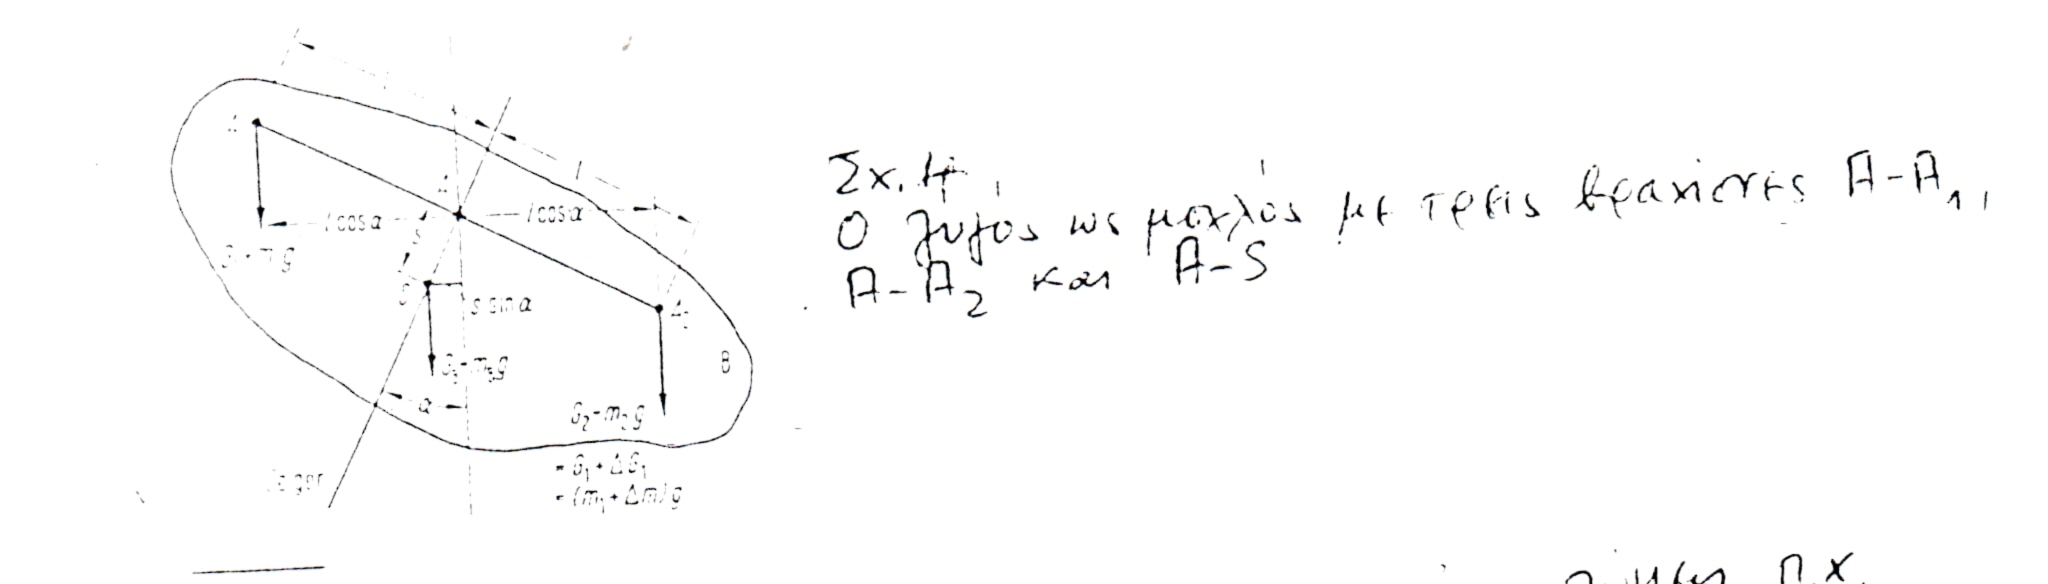 l
A
A
l cos α
l cos α
s
G₁=m₁g
S
s sin α
A₂
G₃=m₃g
B
α
G₂=m₂g
=G₁+ΔG₁
=(m₁+Δm)g
Zeiger
Σχ. 4.
Ο ζυγός ως μοχλός με τρείς βραχίονες A-A₁,
A-A₂ και A-S
π.χ.